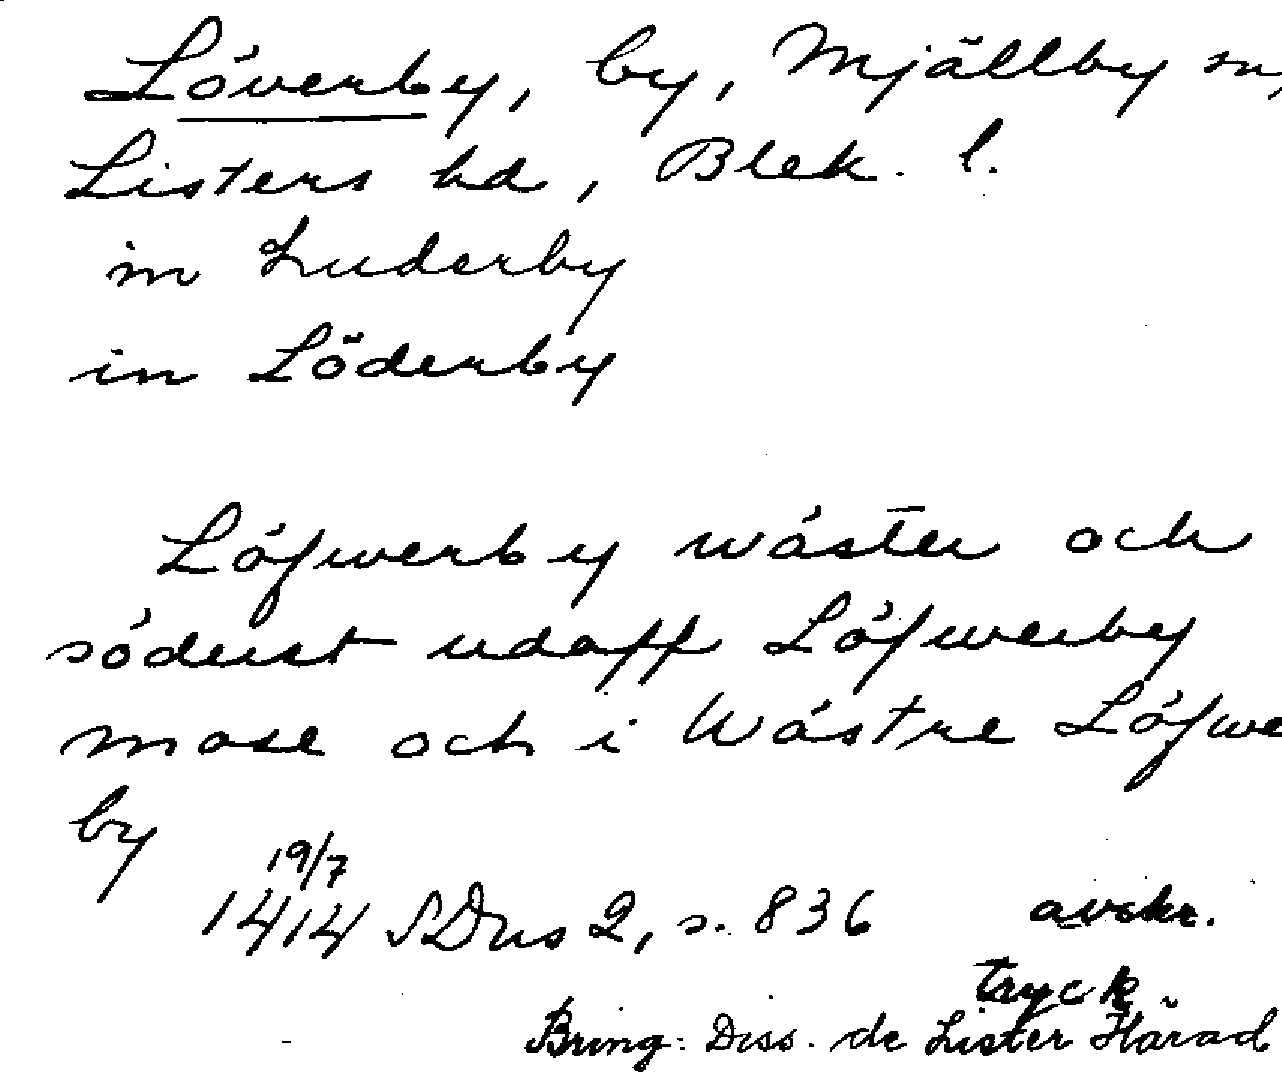 Lóverby, by, Mjällby sn,
Listers hd, Blek. l.
in Luderby
in Löderby
Lófwerby wáster och
sóderst udaff Lófwerby
mose och i Wástre Lófwe
by
19/7
1414 SDns 2, s. 836 avskr.
tryck
Bring: Diss. de Lister Härad